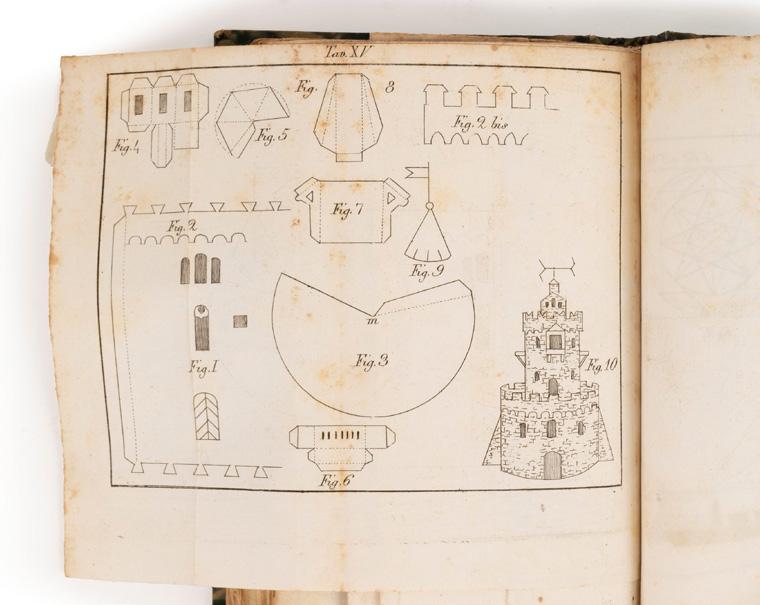 Tav. XV
Fig. 8
Fig. 4
Fig. 5
Fig. 2 bis
Fig. 7
Fig. 2
Fig. 9
m
Fig. 3
Fig. 1
Fig. 10
Fig. 6